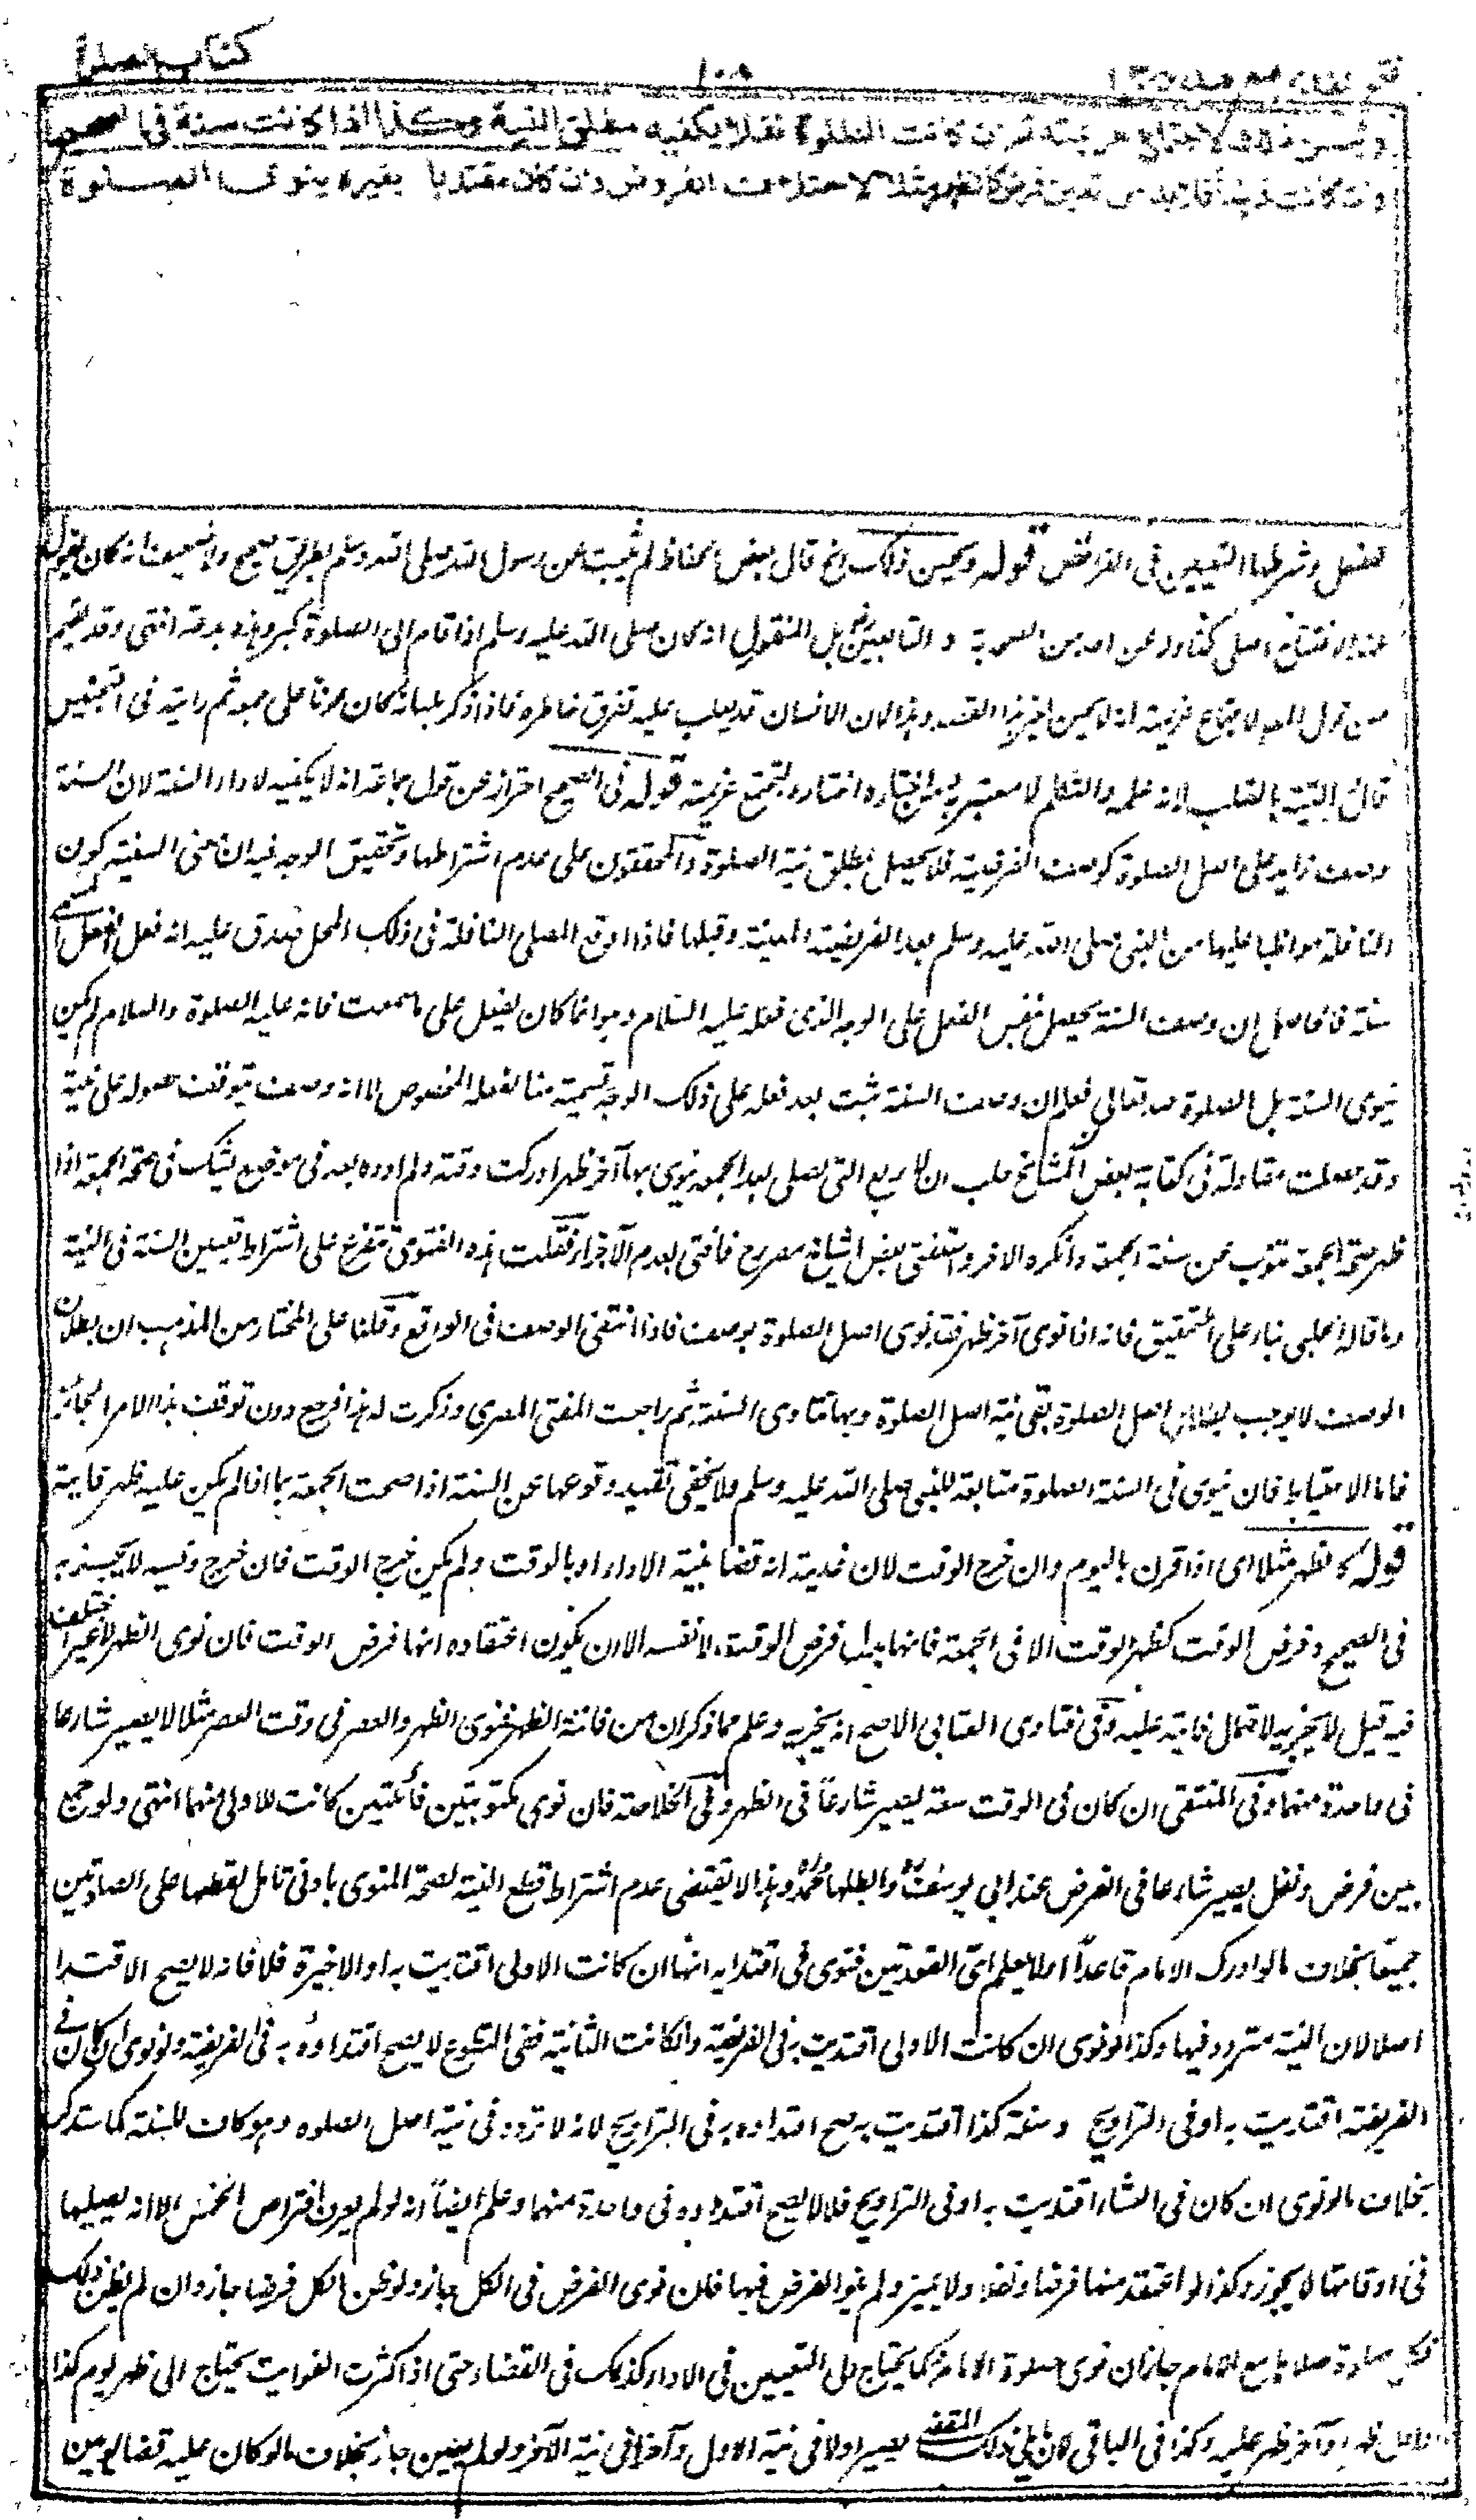 كتاب الصلوة
١٠٨
ويحسن ذلك لاجتماع عزيمته ثم ان كانت الصلوة نفلا يكفيه مطلق النية وكذا اذا كانت سنة فى الصحيح
وان كانت فرضا فلا بد من تعيين فرض كالظهر مثلا لاختلاف الفروض وان كان مقتديا بغيره ينوى الصلوة
وشرطها التعيين فى الفرائض قوله ويحسن ذلك الخ قال بعض الحفاظ لم يثبت عن رسول الله صلى الله وسلم بطريق صحيح ولا ضعيف انه كان يقول
عند الافتتاح اصلى كذا ولا عن احد من الصحابة والتابعين بل المنقول انه كان صلى الله عليه وسلم اذا قام الى الصلوة كبر وهذه بدعة انتهى وقد يفهم
من قول المص لاجتماع عزيمته انه لا يحسن لغير هذا القصد وهذا لان الانسان قد يغلب عليه تفرق خاطره فاذا ذكر بلسانه كان عونا على جمعه ثم رايته فى التجنيس
قال والنية بالقلب لانه عمله والتكلم لا معتبر به ومن اختاره اختاره لتجتمع عزيمته قوله فى الصحيح احتراز عن قول جماعة انه لا يكفيه لاداء السنة لان السنة
وصف زايد على اصل الصلوة كوصف الفرضية فلا يحصل بمطلق نية الصلوة والمحققون على عدم اشتراطها وتحقيق الوجه فيه ان معنى السنية كون
النافلة مواظبا عليها من النبى صلى الله عليه وسلم بعد الفريضة المعينة وقبلها فاذا اوقع المصلى النافلة فى ذلك المحل صدق عليه انه فعل الفعل المسمى
سنة فالحاصل ان وصف السنة يحصل بنفس الفعل على الوجه الذى فعله عليه السلام وهو انما كان يفعل على ما سمعت فانه عليه الصلوة والسلام لم يكن
ينوى السنة بل الصلوة لله تعالى فعلم ان وصف السنة ثبت بعد فعله على ذلك الوجه تسمية منا لفعله المخصوص لا انه وصف يتوقف حصوله على نية
وقد حصلت مقاولة فى كتابة بعض المشايخ حلب ان الاربع التى تصلى بعد الجمعة ينوى بها آخر ظهر ادركت وقته ولم اؤده بعد فى موضع يشك فى صحة الجمعة اذا
ظهر صحة الجمعة تنوب عن سنة الجمعة وانكره الآخر واستفتى بعض اشياخ مصر فافتى بعدم الاجزاء فقلت هذه الفتوى تتفرع على اشتراط تعيين السنة فى النية
وما قاله الحلبى بناء على التحقيق فانه اذا نوى آخر ظهر فقد نوى اصل الصلوة بوصف فاذا انتفى الوصف فى الواقع وقلنا على المختار من المذهب ان بطلان
الوصف لا يوجب بطلان اصل الصلوة بقى نية اصل الصلوة وبها تتادى السنة ثم راجعت المفتى المصرى وذكرت له هذا فرجع دون توقف هذا الامر الجائز
فاما الاحتياط فان ينوى فى السنة الصلوة متابعة للنبى صلى الله عليه وسلم ولا يخفى تقييد وقوعها عن السنة اذا صحت الجمعة بما اذا لم يكن عليه ظهر فايتة
قوله كالظهر مثلا اى اذا قرن باليوم وان خرج الوقت لان غايته انه قضاء بنية الاداء او بالوقت ولم يكن خرج الوقت فان خرج ونسيه لا يجزيه
فى الصحيح وفرض الوقت كظهر الوقت الا فى الجمعة فانها بدل فرض الوقت لا نفسه الا ان يكون اعتقاده انها فرض الوقت فان نوى الظهر لا غير اختلف
فيه قيل لا يجزيه لاحتمال فايتة عليه وفى فتاوى العتابى الاصح انه يجزيه وعلم مما ذكر ان من فاتته الظهر فنوى الظهر والعصر فى وقت العصر مثلا لا يصير شارعا
فى واحدة منهما وفى المنتقى ان كان فى الوقت سعة يصير شارعاً فى الظهر وفى الخلاصة فان نوى مكتوبتين فائتتين كانت للاولى منهما انتهى ولو جمع
بين فرض ونفل يصير شارعا فى الفرض عند ابى يوسف وابطلها محمد وهذا لا يقتضى عدم اشتراط قطع النية لصحة المنوى بادنى تامل لقطعها على الصلوتين
جميعا بخلاف ما لو ادرك الامام قاعداً لا يعلم اى القعدتين فنوى فى اقتدايه انها ان كانت الاولى اقتديت به او الاخيرة فلا فانه لا يصح الاقتدا
اصلا لان النية متردد فيها وكذا لو نوى ان كانت الاولى اقتديت به فى الفريضة وان كانت الثانية ففى التطوع لا يصح اقتداؤه به فى الفريضة ولو نوى ان كان فى
الفريضة اقتديت به او فى التراويح وسنة كذا اقتديت به صح اقتداؤه به فى التراويح لانه لا تردد فى نية اصل الصلوه وهو كاف للسنة كما ستذكر
بخلاف ما لو نوى ان كان فى العشاء اقتديت به او فى التراويح فلا لا يصح اقتداؤه فى واحدة منهما وعلم ايضاً انه لو لم يعرف افتراض الخمس الا انه يصليها
فى اوقاتها لا يجوز وكذا لو اعتقد منها فرضا ونفلا ولا يميز ولم ينو الفرض فيها فان نوى الفرض فى الكل جاز ولو ظن الكل فرضا جاز وان لم يظن ذلك
فكل صلوة صلاها مع الامام جاز ان نوى صلوة الامام وكما يحتاج الى التعيين فى الاداء كذلك فى القضاء حتى اذا كثرت الفوايت يحتاج الى ظهر يوم كذا
او آخر ظهر عليه وكذا فى الباقى لان ما يلى ذلك المقضى يصير اولا فى نية الاول وآخرا فى نية الآخر ولو لم يعين جاز بخلاف ما لو كان عليه قضا يومين